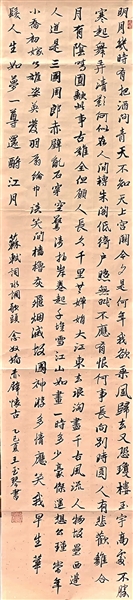 明月幾時有把酒問青天不知天上宮闕今夕是何年我欲乘風歸去又恐瓊樓玉宇高處不勝
寒起舞弄清影何似在人間轉朱閣低綺戶照無眠不應有恨何事長向別時圓人有悲歡離合
月有陰晴圓缺此事古難全但願人長久千里共嬋娟大江東去浪淘盡千古風流人物故壘西邊
人道是三國周郎赤壁亂石穿空驚濤拍岸卷起千堆雪江山如畫一時多少豪傑遙想公瑾當年
小喬初嫁了雄姿英發羽扇綸巾談笑間檣櫓灰飛煙滅故國神遊多情應笑我早生華
髮人生如夢一尊還酹江月 蘇軾詞水調歌頭念奴嬌赤壁懷古 乙巳夏王玉書